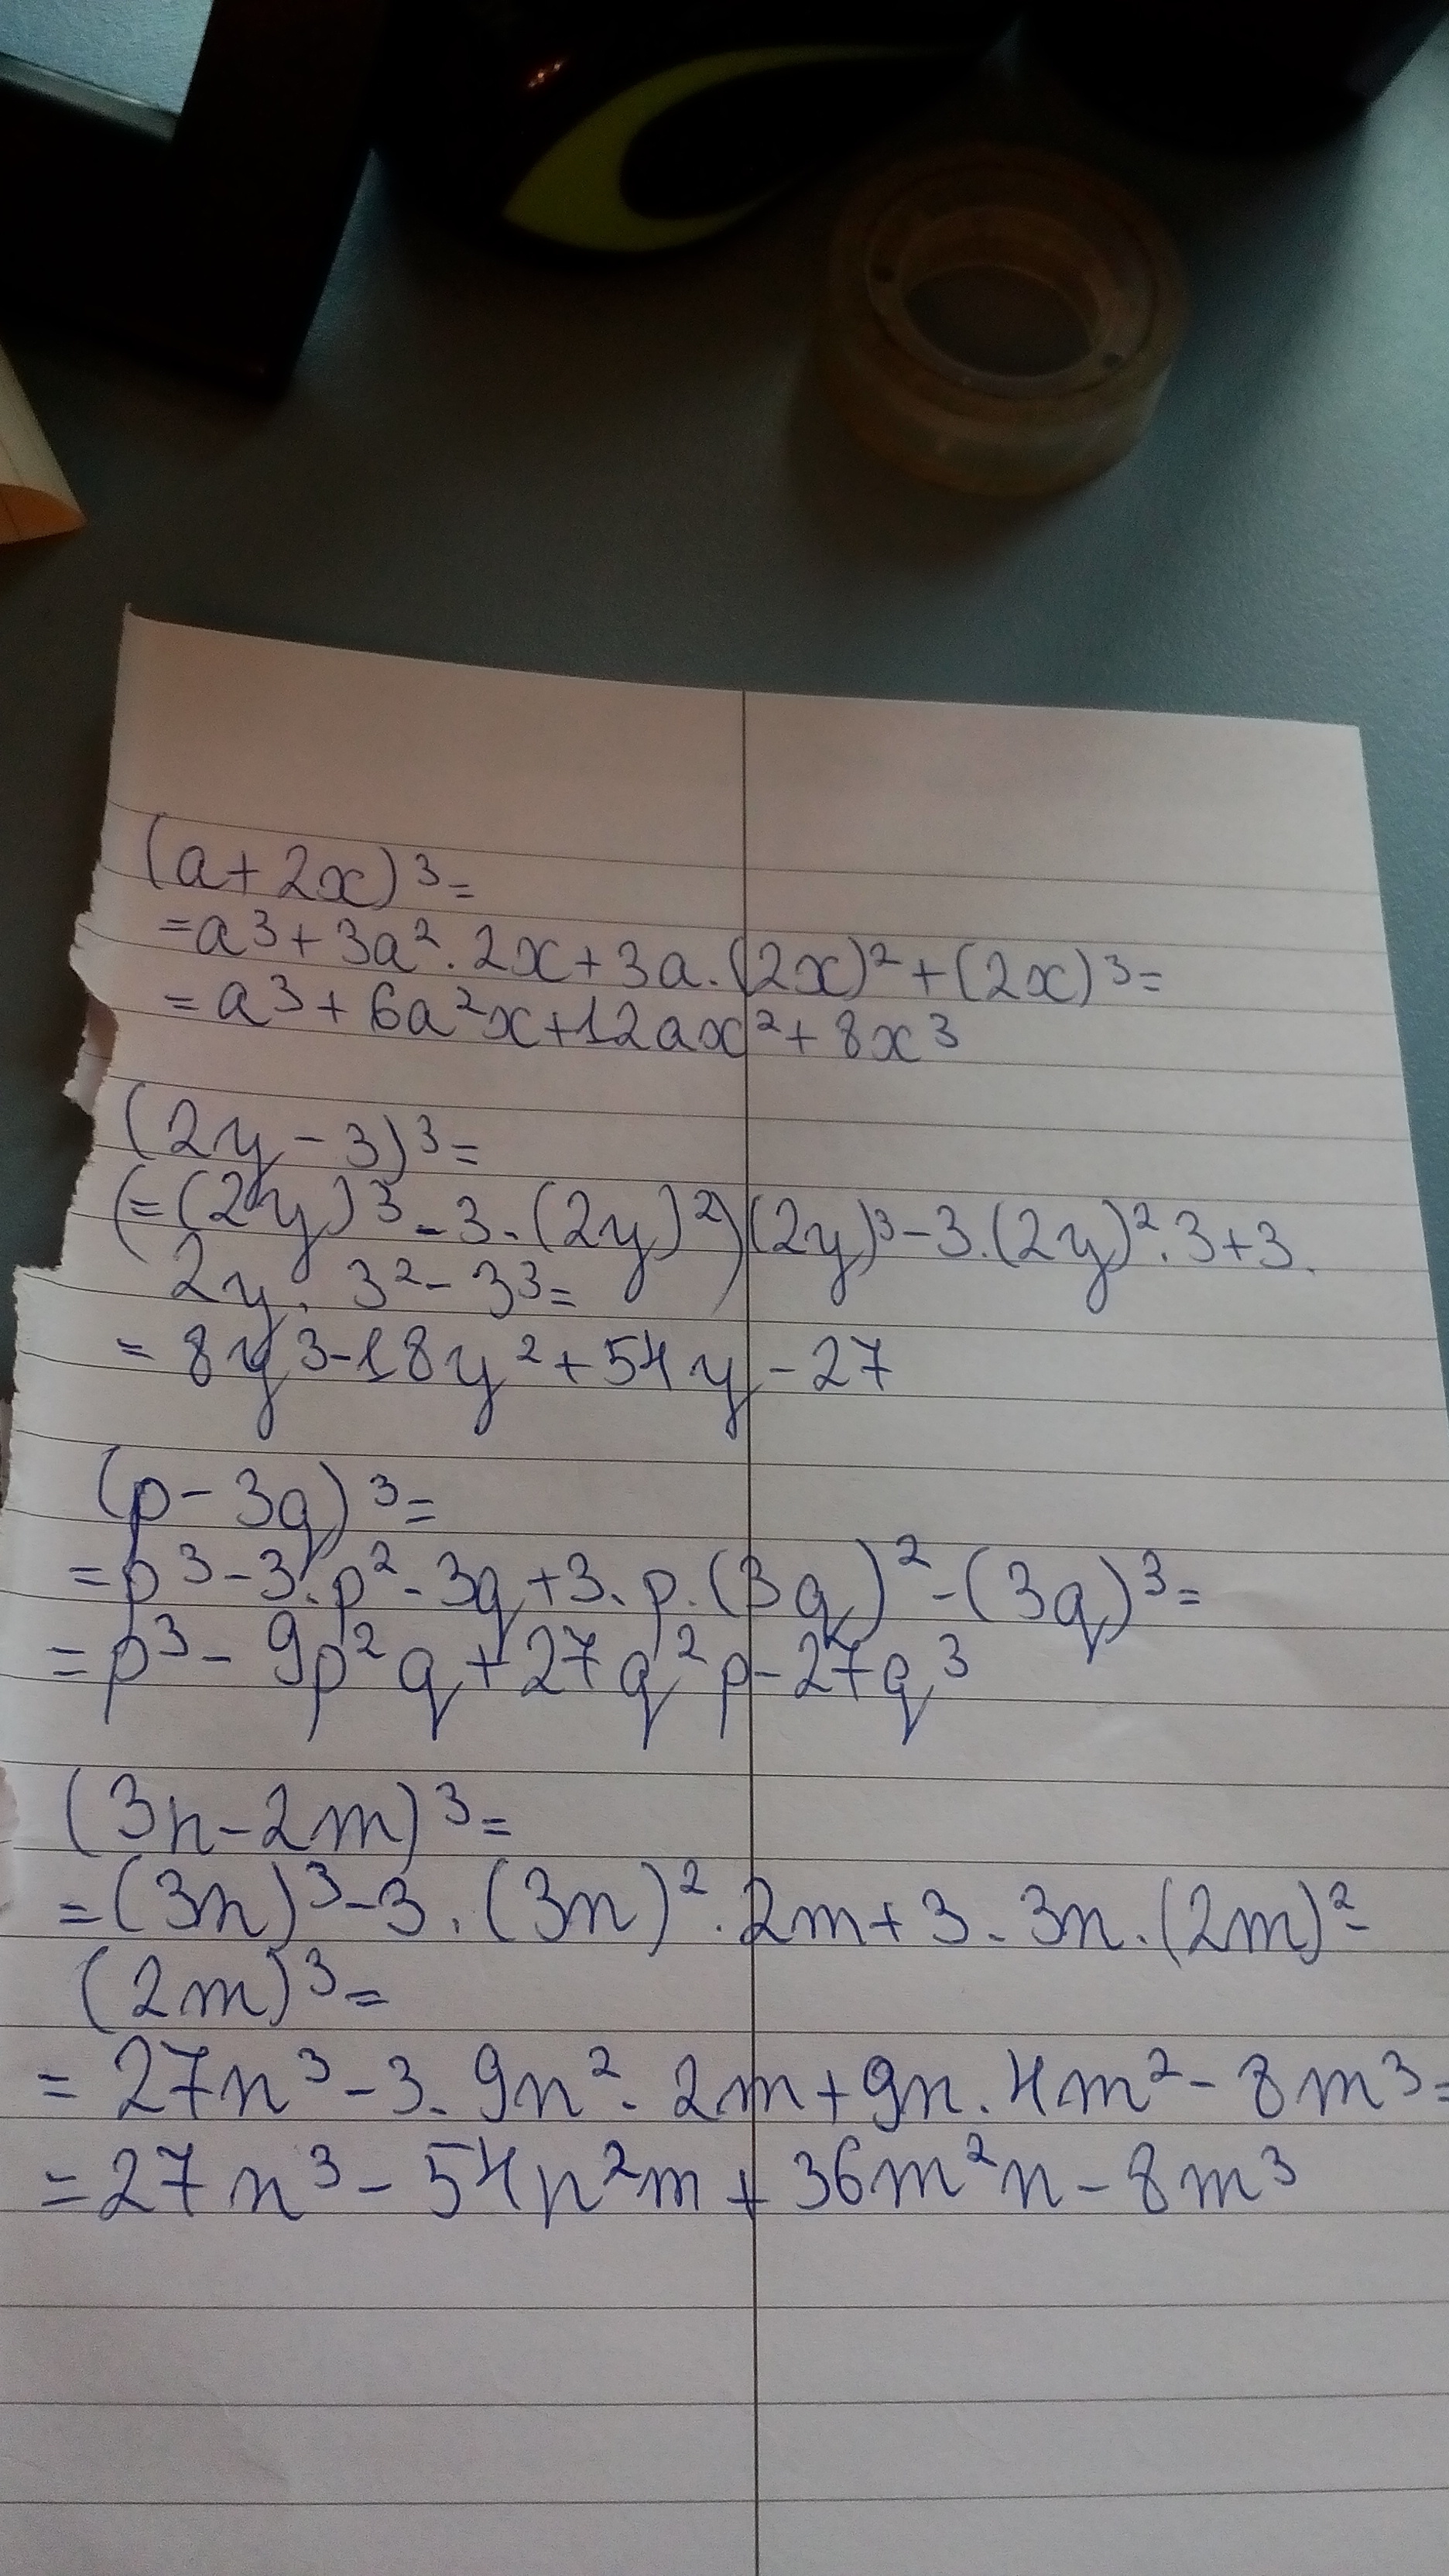 (a+2x)³=
=a³+3a².2x+3a.(2x)²+(2x)³=
=a³+6a²x+12ax²+8x³
(2y-3)³=
(=(2y)³-3.(2y)²)(2y)³-3.(2y)².3+3.
2y.3²-3³=
=8y³-18y²+54y-27
(p-3q)³=
=p³-3.p².3q+3.p.(3q)²-(3q)³=
=p³-9p²q+27q²p-27q³
(3n-2m)³=
=(3n)³-3.(3n)².2m+3.3n.(2m)²-
(2m)³=
=27n³-3.9n².2m+9n.4m²-8m³=
=27n³-54n²m+36m²n-8m³